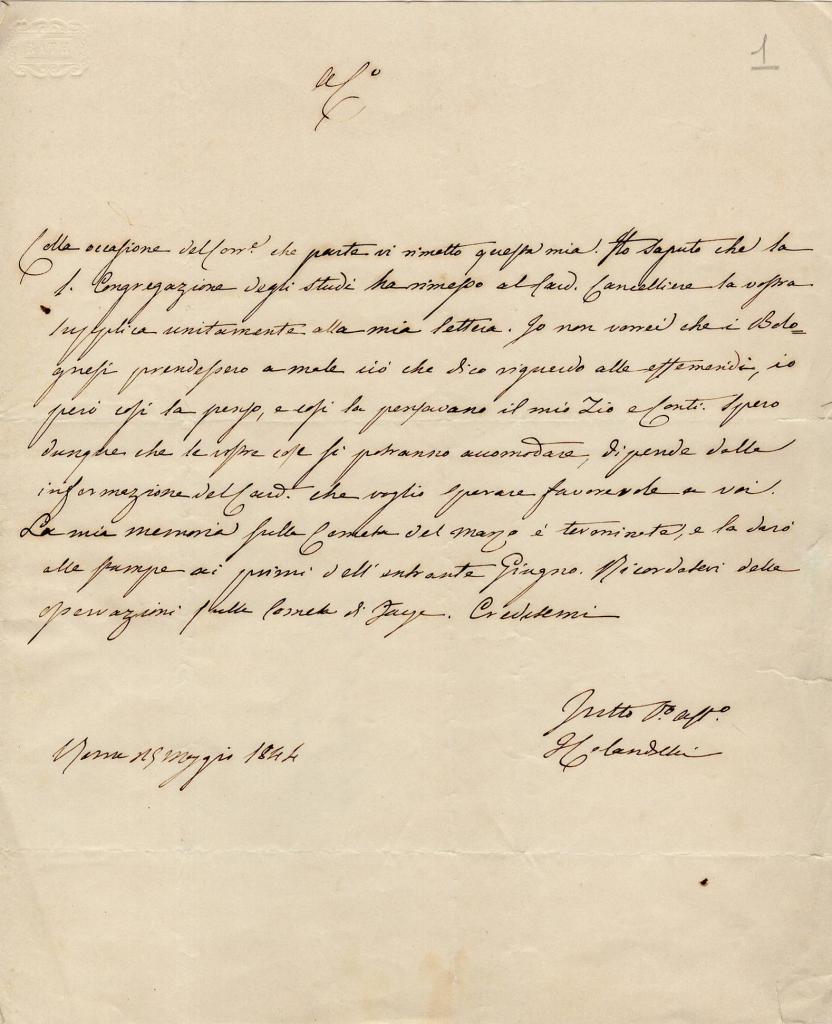 BATH
1
A. C.º
Colla occasione del Corr.e che parte vi rimetto questa mia. Ho saputo che la
S. Congregazione degli studi ha rimesso al Card. Cancelliere la vostra
supplica unitamente alla mia lettera. Io non vorrei che i Bolo=
gnesi prendessero a male ciò che dico riguardo alle effemeridi, io
però così la penso, e così la pensavano il mio Zio e Conti. Spero
dunque che le vostre cose si potranno accomodare, dipende dalla
informazione del Card. che voglio sperare favorevole a voi.
La mia memoria sulla Cometa del Marzo è terminata, e la darò
alle stampe ai primi dell' entrante Giugno. Ricordatevi delle
osservazioni sulla Cometa di Faye. Credetemi
Tutto V.º aff.º
I Calandrelli
Roma 25 Maggio 1844